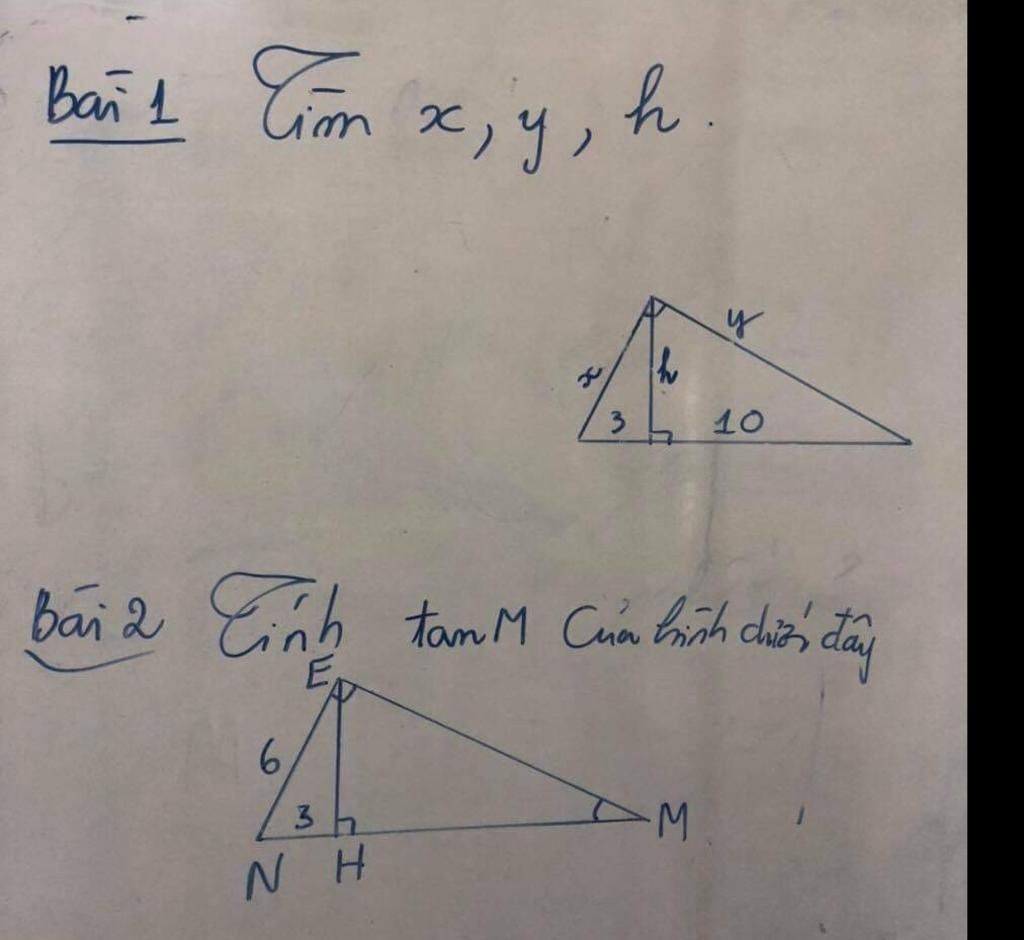 Bài 1 Tìm x, y, h.
y
x h
3 10
Bài 2 Tính tan M Của hình dưới đây
E
6
3
M
N H